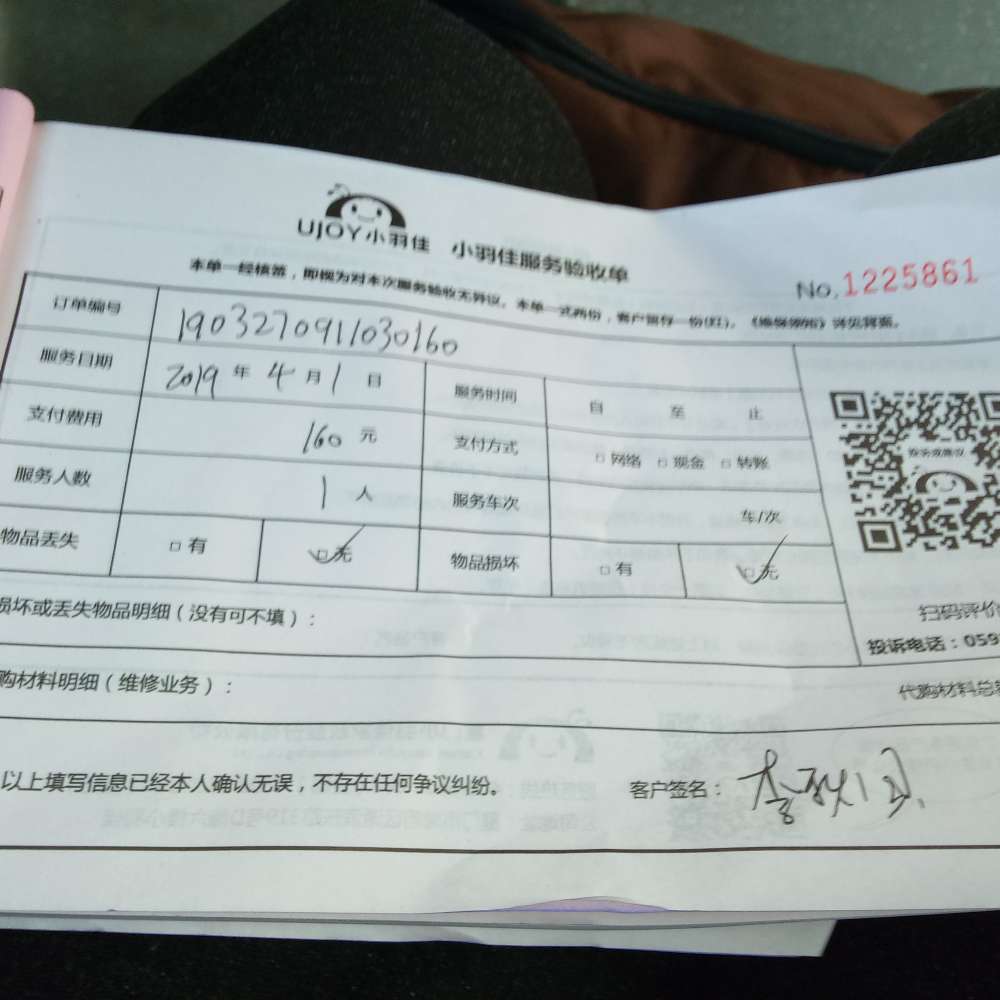 UJOY小羽佳 小羽佳服务验收单
No.1225861
本单一经核签，即视为对本次服务验收无异议。本单一式两份，客户留存一份(红)。
订单编号 1903270911030160
服务日期 2019年4月1日 服务时间 自 至 止
支付费用 160元 支付方式 □网络 □现金 □转账
服务人数 1人 服务车次 车/次
物品丢失 □有 ☑无 物品损坏 □有 ☑无
损坏或丢失物品明细（没有可不填）：
扫码评价
投诉电话：059
购材料明细（维修业务）：
代购材料总
以上填写信息已经本人确认无误，不存在任何争议纠纷。 客户签名：